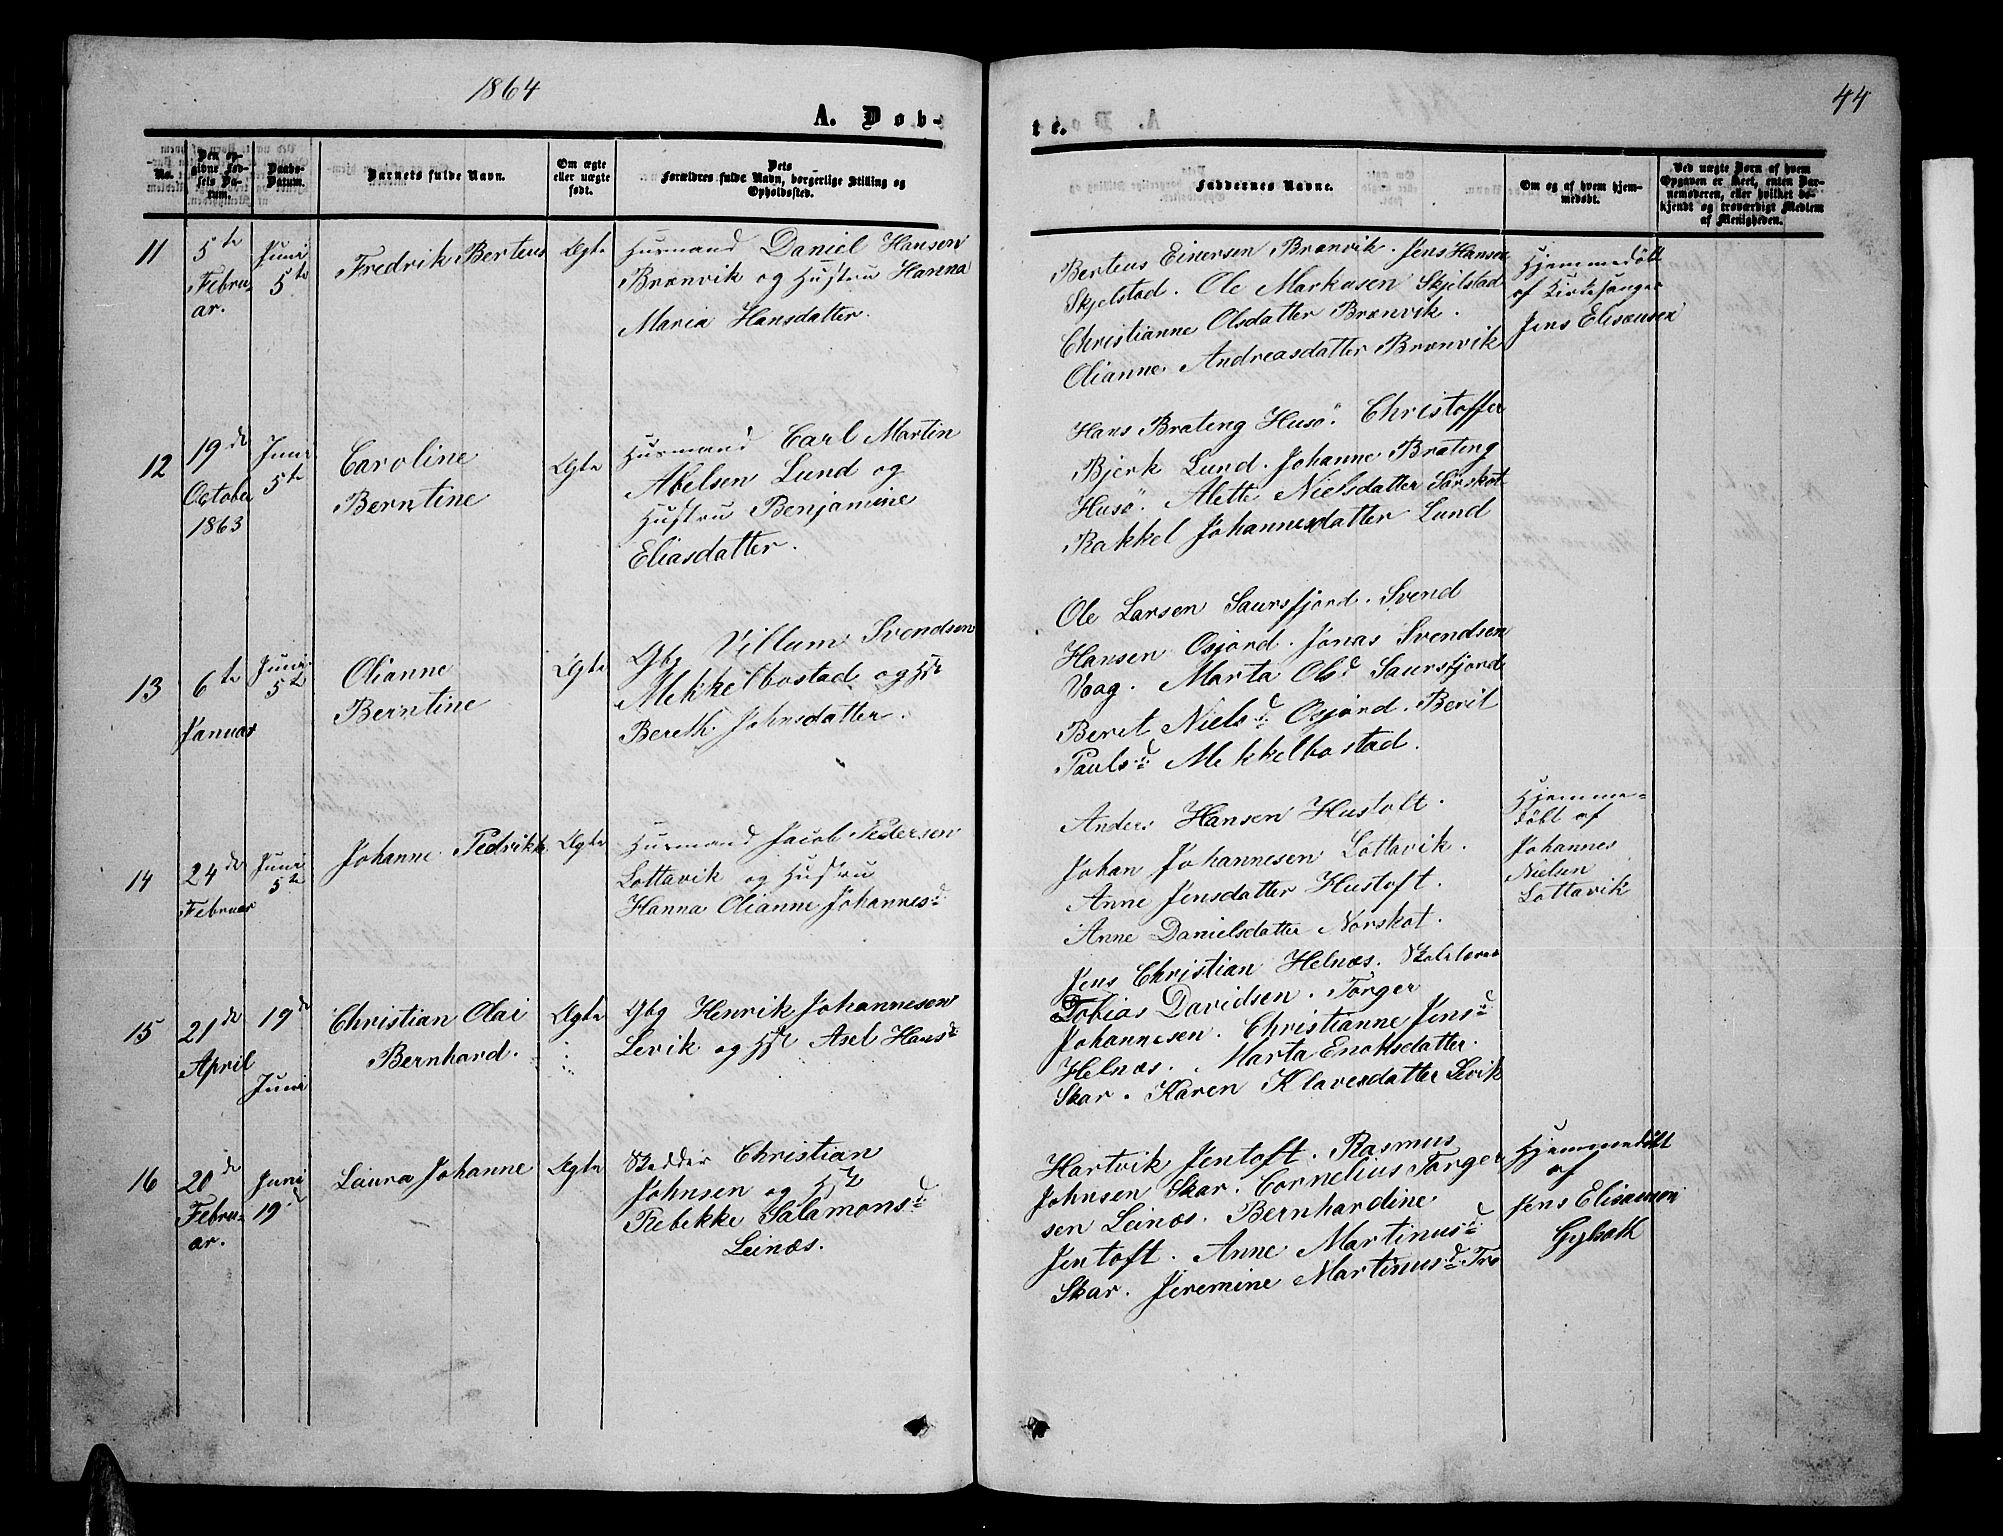 1864
44
A. Døb-
te.
No.
Den op-
givne Fød-
sels Da-
tum.
Daabs-
Datum.
Barnets fulde Navn.
Om ægte
eller uægte
født.
Dets
Forældres fulde Navn, borgerlige Stilling og
Opholdssted.
Faddernes Navne.
Om og af hvem hjem-
medøbt.
Ved uægte Børn af hvem
Opgaven er skeet, enten Bar-
nemoderen, eller hvilket be-
kjendt og troværdigt Medlem
af Menigheden.
11
5te
Febru-
ar.
Juni
5te
Fredrik Berteus
Ægte
Husmand Daniel Hansen
Brænvik og Hustru Hanna
Maria Hansdatter.
Berteus Einersen Brænvik. Jens Hansen
Skjelstad. Ole Markusen Skjelstad
Christianne Olsdatter Brænvik.
Olianne Andreasdatter Brænvik
Hjemmedöbt
af Kirkesanger
Jens Elisæusen
12
19de
October
1863
Juni
5te
Caroline
Berntine
Ægte
Husmand Carl Martin
Abelsen Lund og
Hustru Benjamine
Eliasdatter.
Hans Brateng Husö. Christoffer
Bjerk Lund. Johanne Brateng
Husö. Alette Nielsdatter Sörskot
Rakkel Johannesdatter Lund
13
6te
Januar
Juni
5te
Olianne
Berntine
Ægte
Gbg Villum Svendsen
Mekkelbostad og Hst
Bereth Johnsdatter.
Ole Larsen Saursfjord. Svend
Hansen Osjord. Jonas Svendsen
Vaag. Marta Olsd Saursfjord
Beret Nielsd. Osjord. Berit
Paulsd. Mekkelbostad.
14
24de
Februar
Juni
5te
Johanne Pedrikke
Ægte
Husmand Jacob Pedersen
Lottavik og Hustru
Hanna Olianne Johannesd
Anders Hansen Hustoft.
Johan Johannesen Lottavik.
Anne Jensdatter Hustoft.
Anne Danielsdatter Nörskot.
Hjemme-
döbt af
Johannes
Nielsen
Lottavik
15
21de
April
19de
Juni
Christian Olai
Bernhard.
Ægte
Gbg Henrik Johannesen
Levik og Hst Axel Hansd
Jens Christian Helnæs. Skolelærer
Tobias Davidsen. Torger
Johannesen. Christianne Jensd
Helnæs. Marta Enoksdatter
Skar. Karen Klavesdatter Levik
16
20de
Febru-
ar.
Juni
19de
Laura Johanne
Ægte
Skedder Christian
Johnsen og Hst
Rebekke Salamonsd
Leinæs.
Hartvik Jentoft. Rasmus
Johnsen Skar. Cornelius Torger
sen Leinæs. Bernhardine
Jentoft. Anne Martinusd
Skar. Jeremine Martinusd
Hjemmedöbt
af
Jens Elisæusen